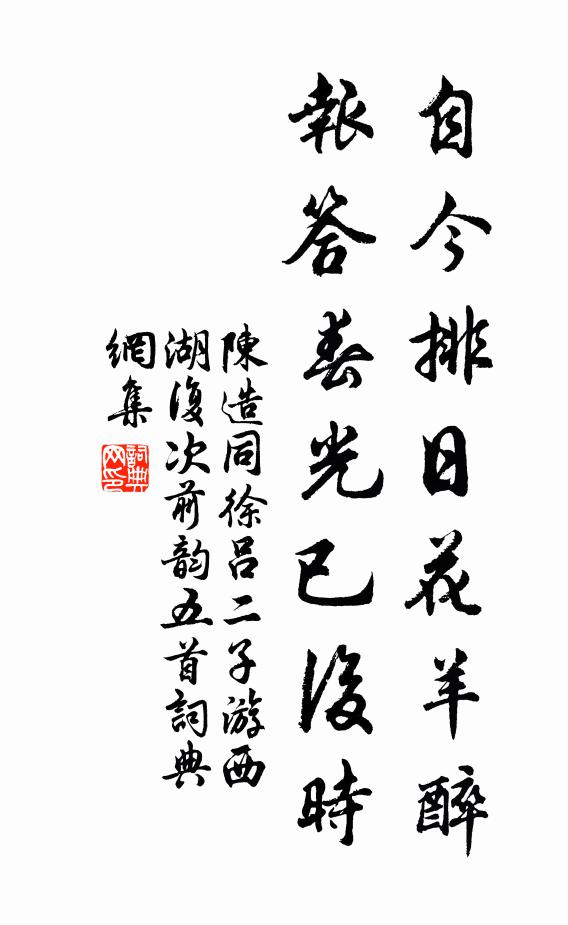 自今排日花羊醉
報答春光已後時
陳造同徐呂二子游西
湖復次前韵五首詞典
網集
詞典网印